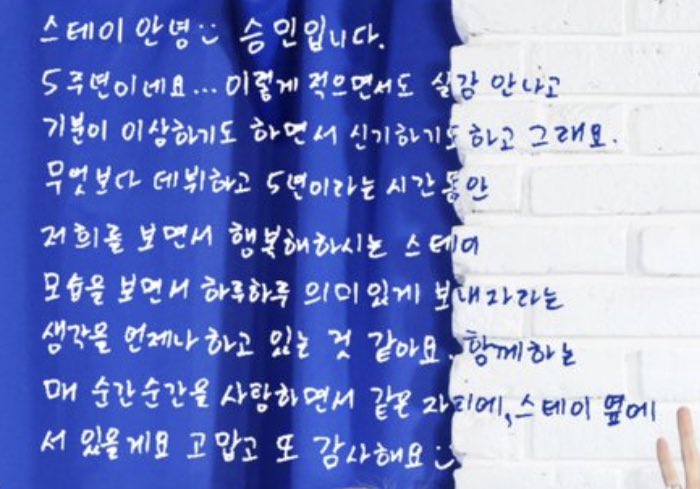 스테이 안녕 승민입니다.
5주년이네요... 이렇게 적으면서도 실감 안나고
기분이 이상하기도 하면서 신기하기도하고 그래요.
무엇보다 데뷔하고 5년이라는 시간동안
저희를 보면서 행복해하시는 스테이
모습을 보면서 하루하루 의미있게 보내자라는
생각을 언제나 하고 있는 것 같아요. 함께하는
매 순간순간을 사랑하면서 같은 자리에, 스테이 옆에
서 있을게요 고맙고 또 감사해요